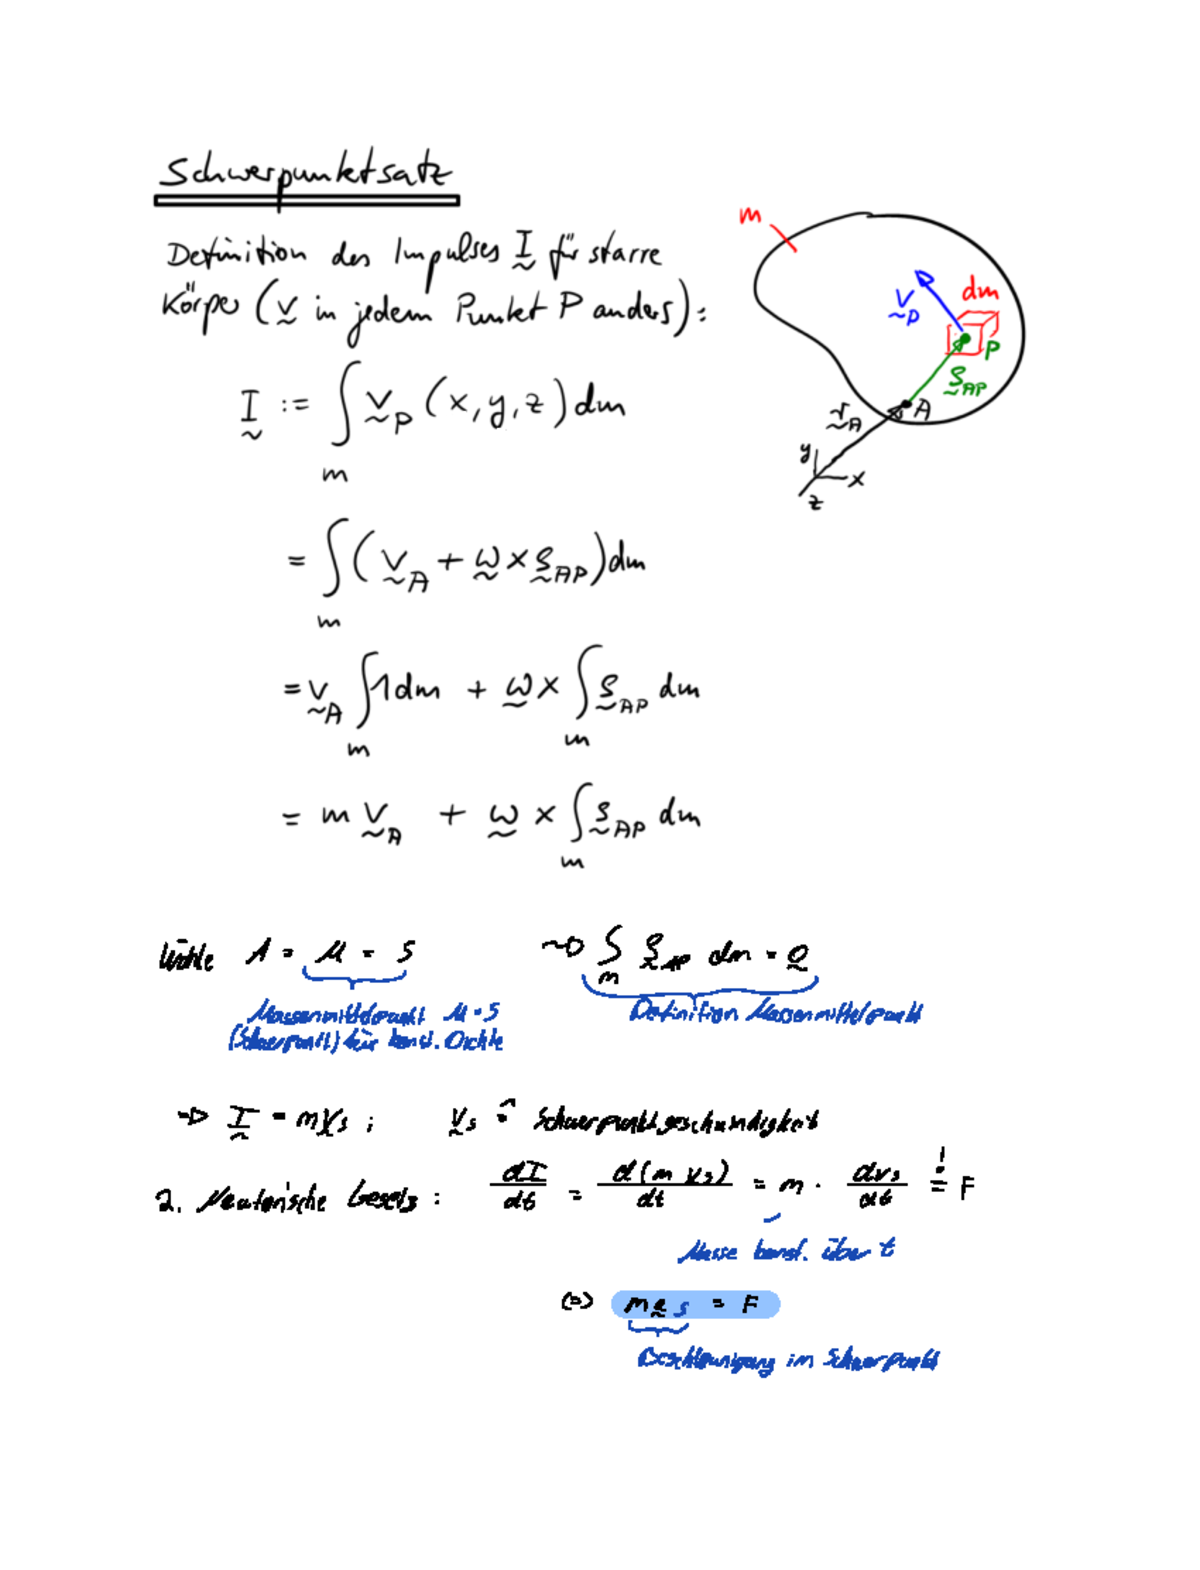 Schwerpunktsatz
Definition des Impulses I für starre
Körper (v in jedem Punkt P anders):
m
dm
v_P
P
ρ_AP
A
r_A
y
x
z
I := ∫_m v_P (x, y, z) dm
= ∫_m (v_A + ω × ρ_AP) dm
= v_A ∫_m 1 dm + ω × ∫_m ρ_AP dm
= m v_A + ω × ∫_m ρ_AP dm
Wähle A = M = S ~> ∫_m ρ_AP dm = 0
Massenmittelpunkt M = S
(Schwerpunkt) für konst. Dichte
Definition Massenmittelpunkt
=> I = m v_s ; v_s ≙ Schwerpunktgeschwindigkeit
2. Newton'sche Gesetz : dI/dt = d(m v_s)/dt = m · dv_s/dt =! F
Masse konst. über t
<=> m a_s = F
Beschleunigung im Schwerpunkt